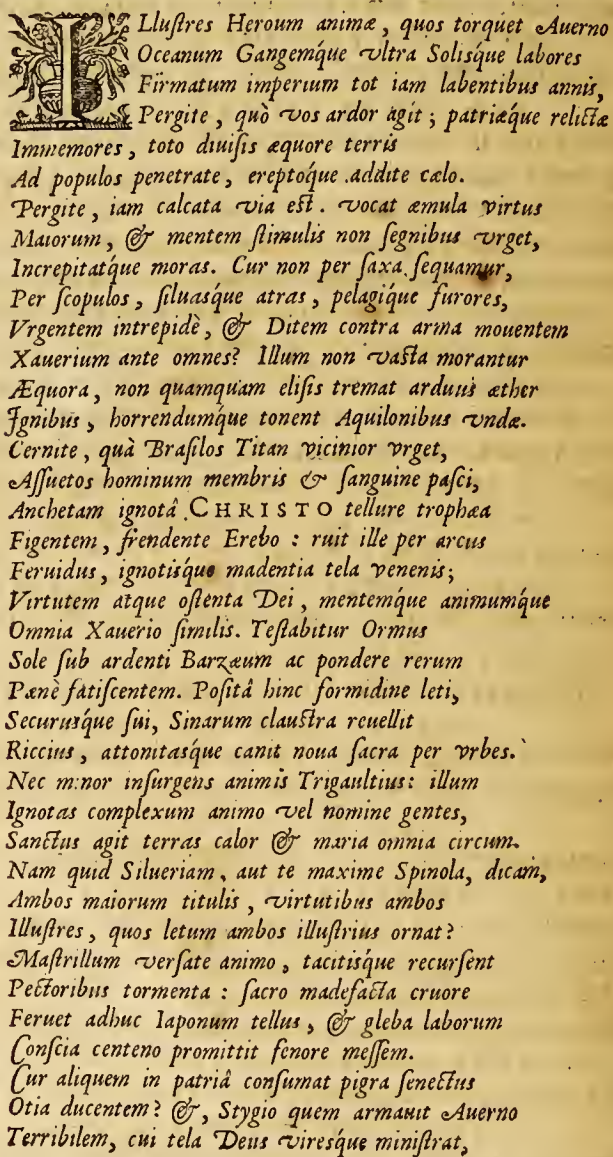 ILlustres Heroum animæ, quos torquet Auerno
Oceanum Gangemq́ue vltra Solisq́ue labores
Firmatum imperium tot iam labentibus annis,
Pergite, quò vos ardor agit; patriæq́ue relictæ
Immemores, toto diuisis æquore terris
Ad populos penetrate, ereptoq́ue addite cælo.
Pergite, iam calcata via est. vocat æmula virtus
Maiorum, & mentem stimulis non segnibus vrget,
Increpitatq́ue moras. Cur non per saxa sequamur,
Per scopulos, siluasq́ue atras, pelagiq́ue furores,
Vrgentem intrepidè, & Ditem contra arma mouentem
Xauerium ante omnes? Illum non vasta morantur
Æquora, non quamquam elisis tremat arduus æther
Ignibus, horrendumq́ue tonent Aquilonibus vndæ.
Cernite, quà Brasilos Titan vicinior vrget,
Assuetos hominum membris & sanguine pasci,
Anchetam ignotâ CHRISTO tellure trophæa
Figentem, frendente Erebo: ruit ille per arcus
Feruidus, ignotisq́ue madentia tela venenis;
Virtutem atque ostenta Dei, mentemq́ue animumq́ue
Omnia Xauerio similis. Testabitur Ormus
Sole sub ardenti Barzæum ac pondere rerum
Pænè fatiscentem. Positâ hinc formidine leti,
Securusq́ue sui, Sinarum claustra reuellit
Riccius, attonitasq́ue canit noua sacra per vrbes.
Nec minor insurgens animis Trigaultius: illum
Ignotas complexum animo vel nomine gentes,
Sanctus agit terras calor & maria omnia circum.
Nam quid Silueriam, aut te maxime Spinola, dicam,
Ambos maiorum titulis, virtutibus ambos
Illustres, quos letum ambos illustrius ornat?
Mastrillum versate animo, tacitisq́ue recursent
Pectoribus tormenta: sacro madefacta cruore
Feruet adhuc Iaponum tellus, & gleba laborum
Conscia centeno promittit fenore messem.
Cur aliquem in patriâ consumat pigra senectus
Otia ducentem? &, Stygio quem armauit Auerno
Terribilem, cui tela Deus viresq́ue ministrat,